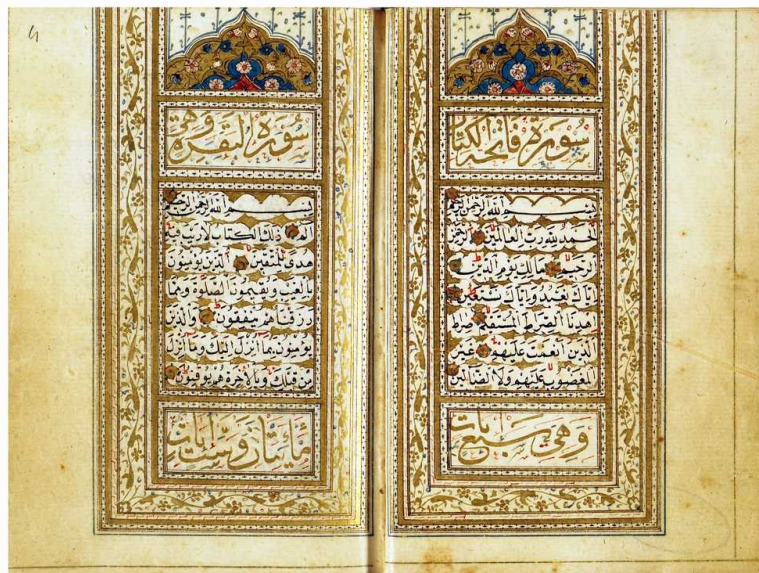 سورة فاتحة الكتاب
بسم الله الرحمن الرحيم
الحمد لله رب العالمين الرحمن
الرحيم مالك يوم الدين
اياك نعبد واياك نستعين
اهدنا الصراط المستقيم صراط
الذين انعمت عليهم غير
المغضوب عليهم ولا الضالين
وهي سبع ايات
سورة البقرة وهي
بسم الله الرحمن الرحيم
الم ذلك الكتاب لا ريب فيه
هدى للمتقين الذين يؤمنون
بالغيب ويقيمون الصلوة ومما
رزقناهم ينفقون والذين
يؤمنون بما انزل اليك وما انزل
من قبلك وبالاخرة هم يوقنون
مائتان وست ايات